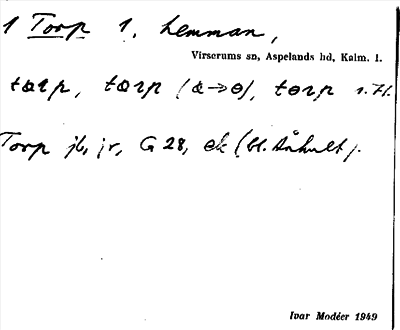 1 Torp 1. hemman,
Virserums sn, Aspelands hd, Kalm. l.
tɑrp, tɑrp (ɑ→ɵ), tɵrp s. 71.
Torp jb, jr, G 28, ek (bl. Åkult).
Ivar Modéer 1949